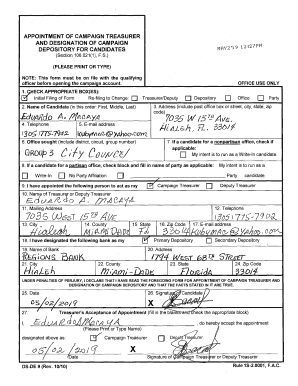 APPOINTMENT OF CAMPAIGN TREASURER
AND DESIGNATION OF CAMPAIGN
DEPOSITORY FOR CANDIDATES
(Section 106.021(1), F.S.)
(PLEASE PRINT OR TYPE)
NOTE: This form must be on file with the qualifying
officer before opening the campaign account.
OFFICE USE ONLY
1. CHECK APPROPRIATE BOX(ES):
Initial Filing of Form Re-filing to Change: Treasurer/Deputy Depository Office Party
2. Name of Candidate (in this order: First, Middle, Last)
Eduardo A. Macaya
3. Address (include post office box or street, city, state, zip code)
7035 W 15th AVE
Hialeah, FL. 33014
4. Telephone
(305) 775-7902
5. E-mail address
6. Office sought (include district, circuit, group number)
Group 3 City Council
7. If a candidate for a nonpartisan office, check if applicable:
My intent is to run as a Write-In candidate.
8. If a candidate for a partisan office, check block and fill in name of party as applicable: My intent is to run as a
Write-In No Party Affiliation Party candidate.
9. I have appointed the following person to act as my Campaign Treasurer Deputy Treasurer
10. Name of Treasurer or Deputy Treasurer
Eduardo A. Macaya
11. Mailing Address
7035 West 15th Ave
12. Telephone
(305) 775-7902
13. City
Hialeah
14. County
Miami Dade
15. State
FL
16. Zip Code
33014
17. E-mail address
18. I have designated the following bank as my Primary Depository Secondary Depository
19. Name of Bank
Regions Bank
20. Address
1794 West 68th Street
21. City
Hialeah
22. County
Miami-Dade
23. State
Florida
24. Zip Code
33014
UNDER PENALTIES OF PERJURY, I DECLARE THAT I HAVE READ THE FOREGOING FORM FOR APPOINTMENT OF CAMPAIGN TREASURER AND
DESIGNATION OF CAMPAIGN DEPOSITORY AND THAT THE FACTS STATED IN IT ARE TRUE.
25. Date
05/02/2019
26. Signature of Candidate
X
27. Treasurer's Acceptance of Appointment (fill in the blanks and check the appropriate block)
I, Eduardo A Macaya , do hereby accept the appointment
(Please Print or Type Name)
designated above as: Campaign Treasurer Deputy Treasurer
05/02/2019
X
Date
Signature of Campaign Treasurer or Deputy Treasurer
DS-DE 9 (Rev. 10/10)
Rule 1S-2.0001, F.A.C.